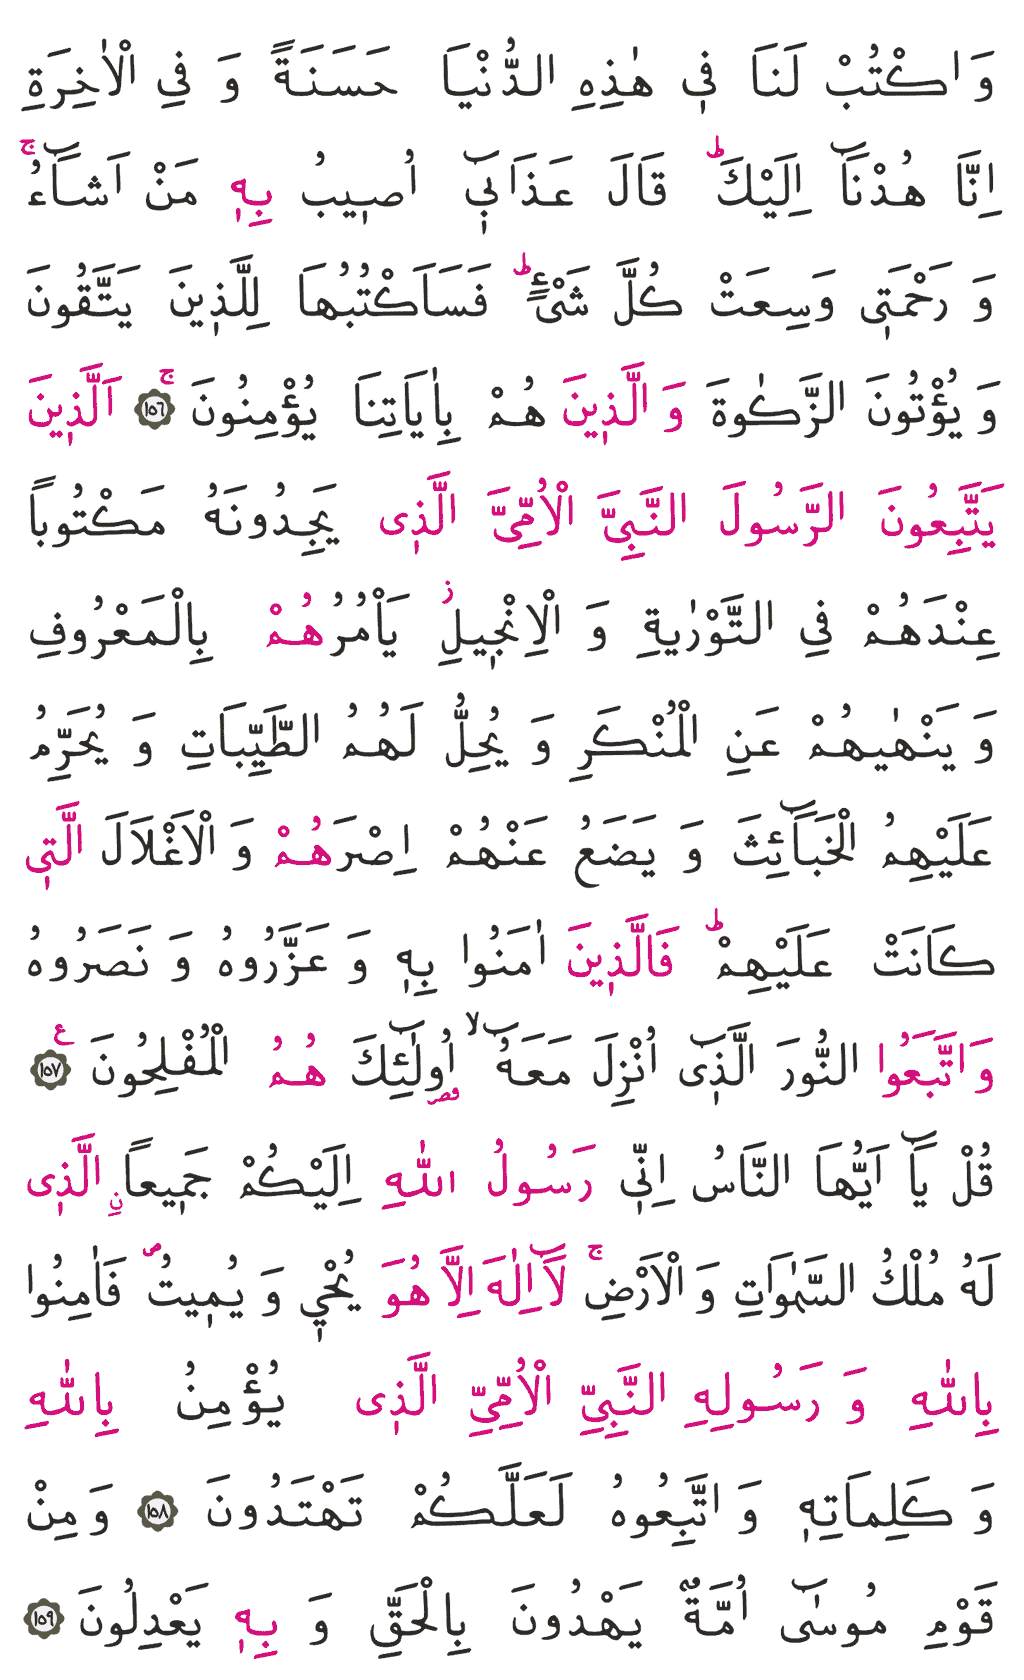 وَ اكْتُبْ لَنَا ف۪ي هٰذِهِ الدُّنْيَا حَسَنَةً وَ فِي الْاٰخِرَةِ
اِنَّا هُدْنَٓا اِلَيْكَۜ قَالَ عَذَاب۪ٓي اُص۪يبُ بِه۪ مَنْ اَشَٓاءُۚ
وَ رَحْمَت۪ي وَسِعَتْ كُلَّ شَيْءٍۜ فَسَاَكْتُبُهَا لِلَّذ۪ينَ يَتَّقُونَ
وَ يُؤْتُونَ الزَّكٰوةَ وَ الَّذ۪ينَ هُمْ بِاٰيَاتِنَا يُؤْمِنُونَۚ ﴿١٥٦﴾ اَلَّذ۪ينَ
يَتَّبِعُونَ الرَّسُولَ النَّبِيَّ الْاُمِّيَّ الَّذ۪ي يَجِدُونَهُ مَكْتُوباً
عِنْدَهُمْ فِي التَّوْرٰيةِ وَ الْاِنْج۪يلِۘ يَأْمُرُهُمْ بِالْمَعْرُوفِ
وَ يَنْهٰيهُمْ عَنِ الْمُنْكَرِ وَ يُحِلُّ لَهُمُ الطَّيِّبَاتِ وَ يُحَرِّمُ
عَلَيْهِمُ الْخَبَٓائِثَ وَ يَضَعُ عَنْهُمْ اِصْرَهُمْ وَ الْاَغْلَالَ الَّت۪ي
كَانَتْ عَلَيْهِمْۜ فَالَّذ۪ينَ اٰمَنُوا بِه۪ وَ عَزَّرُوهُ وَ نَصَرُوهُ
وَ اتَّبَعُوا النُّورَ الَّذ۪ٓي اُنْزِلَ مَعَهُٓۙ اُو۬لٰٓئِكَ هُمُ الْمُفْلِحُونَ۟ ﴿١٥٧﴾
قُلْ يَٓا اَيُّهَا النَّاسُ اِنّ۪ي رَسُولُ اللّٰهِ اِلَيْكُمْ جَم۪يعاًۨ الَّذ۪ي
لَهُ مُلْكُ السَّمٰوَاتِ وَ الْاَرْضِۚ لَٓا اِلٰهَ اِلَّا هُوَ يُحْي۪ وَ يُم۪يتُۖ فَاٰمِنُوا
بِاللّٰهِ وَ رَسُولِهِ النَّبِيِّ الْاُمِّيِّ الَّذ۪ي يُؤْمِنُ بِاللّٰهِ
وَ كَلِمَاتِه۪ وَ اتَّبِعُوهُ لَعَلَّكُمْ تَهْتَدُونَ ﴿١٥٨﴾ وَ مِنْ
قَوْمِ مُوسٰٓى اُمَّةٌ يَهْدُونَ بِالْحَقِّ وَ بِه۪ يَعْدِلُونَ ﴿١٥٩﴾